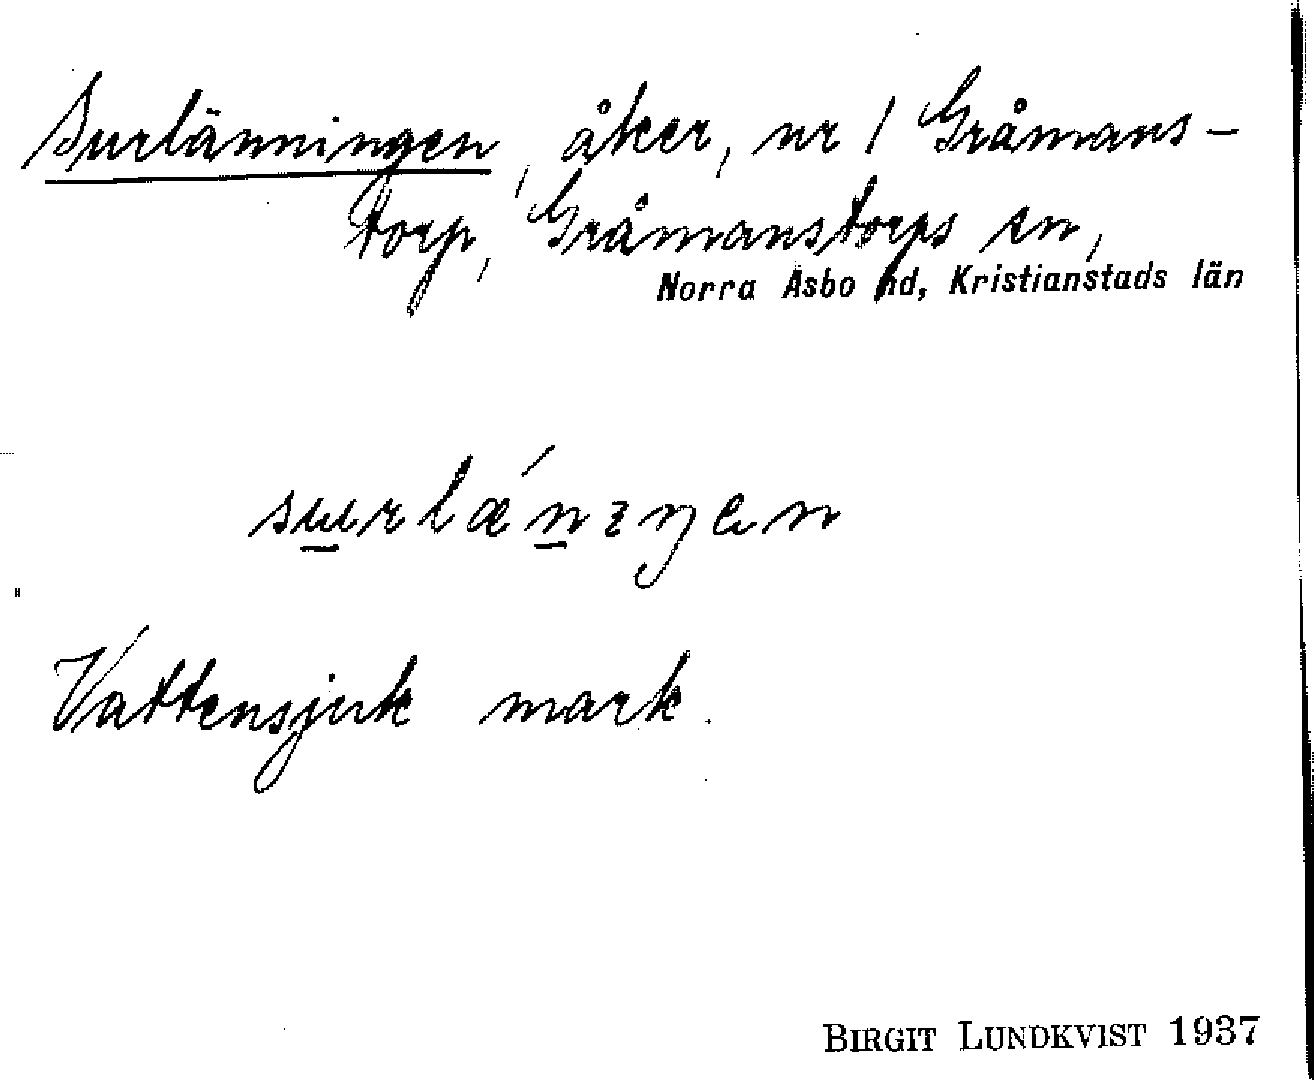 Surlänningen, åker, nr 1 Gråmans-
torp, Gråmanstorps sn,
Norra Åsbo hd, Kristianstads län
surlǽnıŋen
Vattensjuk mark.
BIRGIT LUNDKVIST 1937